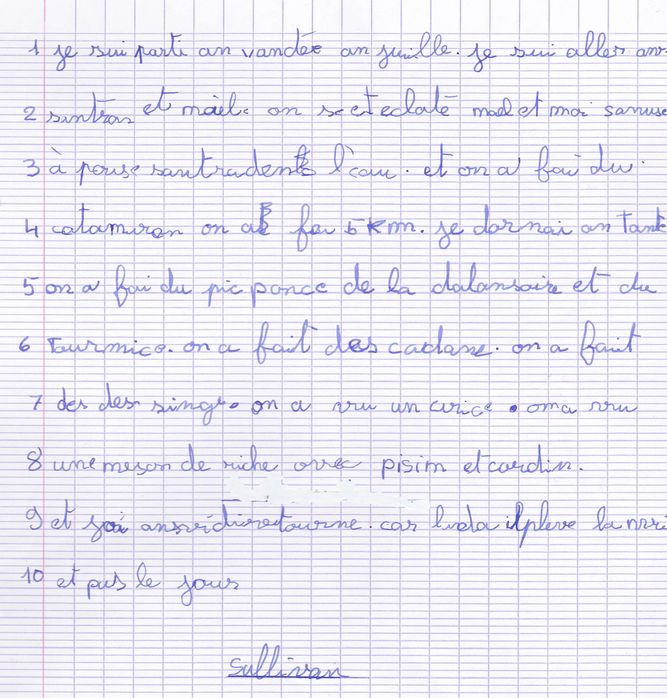 1 je sui parti an vandée an juille. je sui aller av
2 santran et maèl. on s'et eclaté mael et moi sanuse
3 à pouse santradents l'eau. et on a fai du.
4 catamaran on a fai 5 km. je dormai an tante
5 on a fai du pic ponce de la dalansoire et du
6 Tourmico. on a fait des cadane. on a fait
7 des des singe. on a vu un
8 une meson de riche avec pisim et cardin.
9 et j'ai anvi di retourne. car il pleve la nui
10 et pas le jour
Sullivan